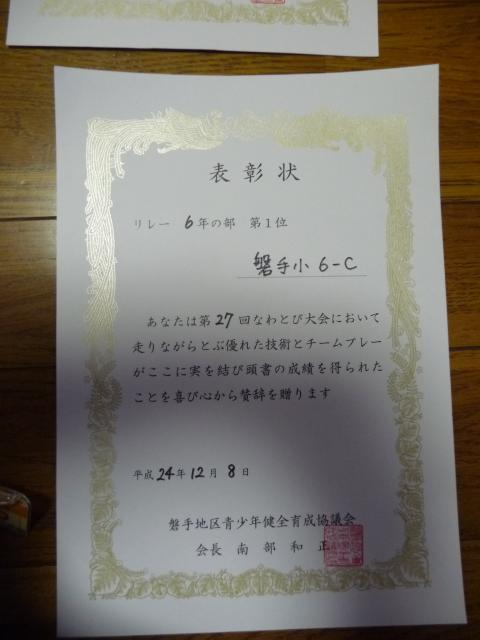 表彰状
リレー 6年の部 第1位
磐手小 6-C
あなたは第27回なわとび大会において
走りながらとぶ優れた技術とチームプレー
がここに実を結び頭書の成績を得られた
ことを喜び心から賛辞を贈ります
平成24年12月8日
磐手地区青少年健全育成協議会
会長 南部和正